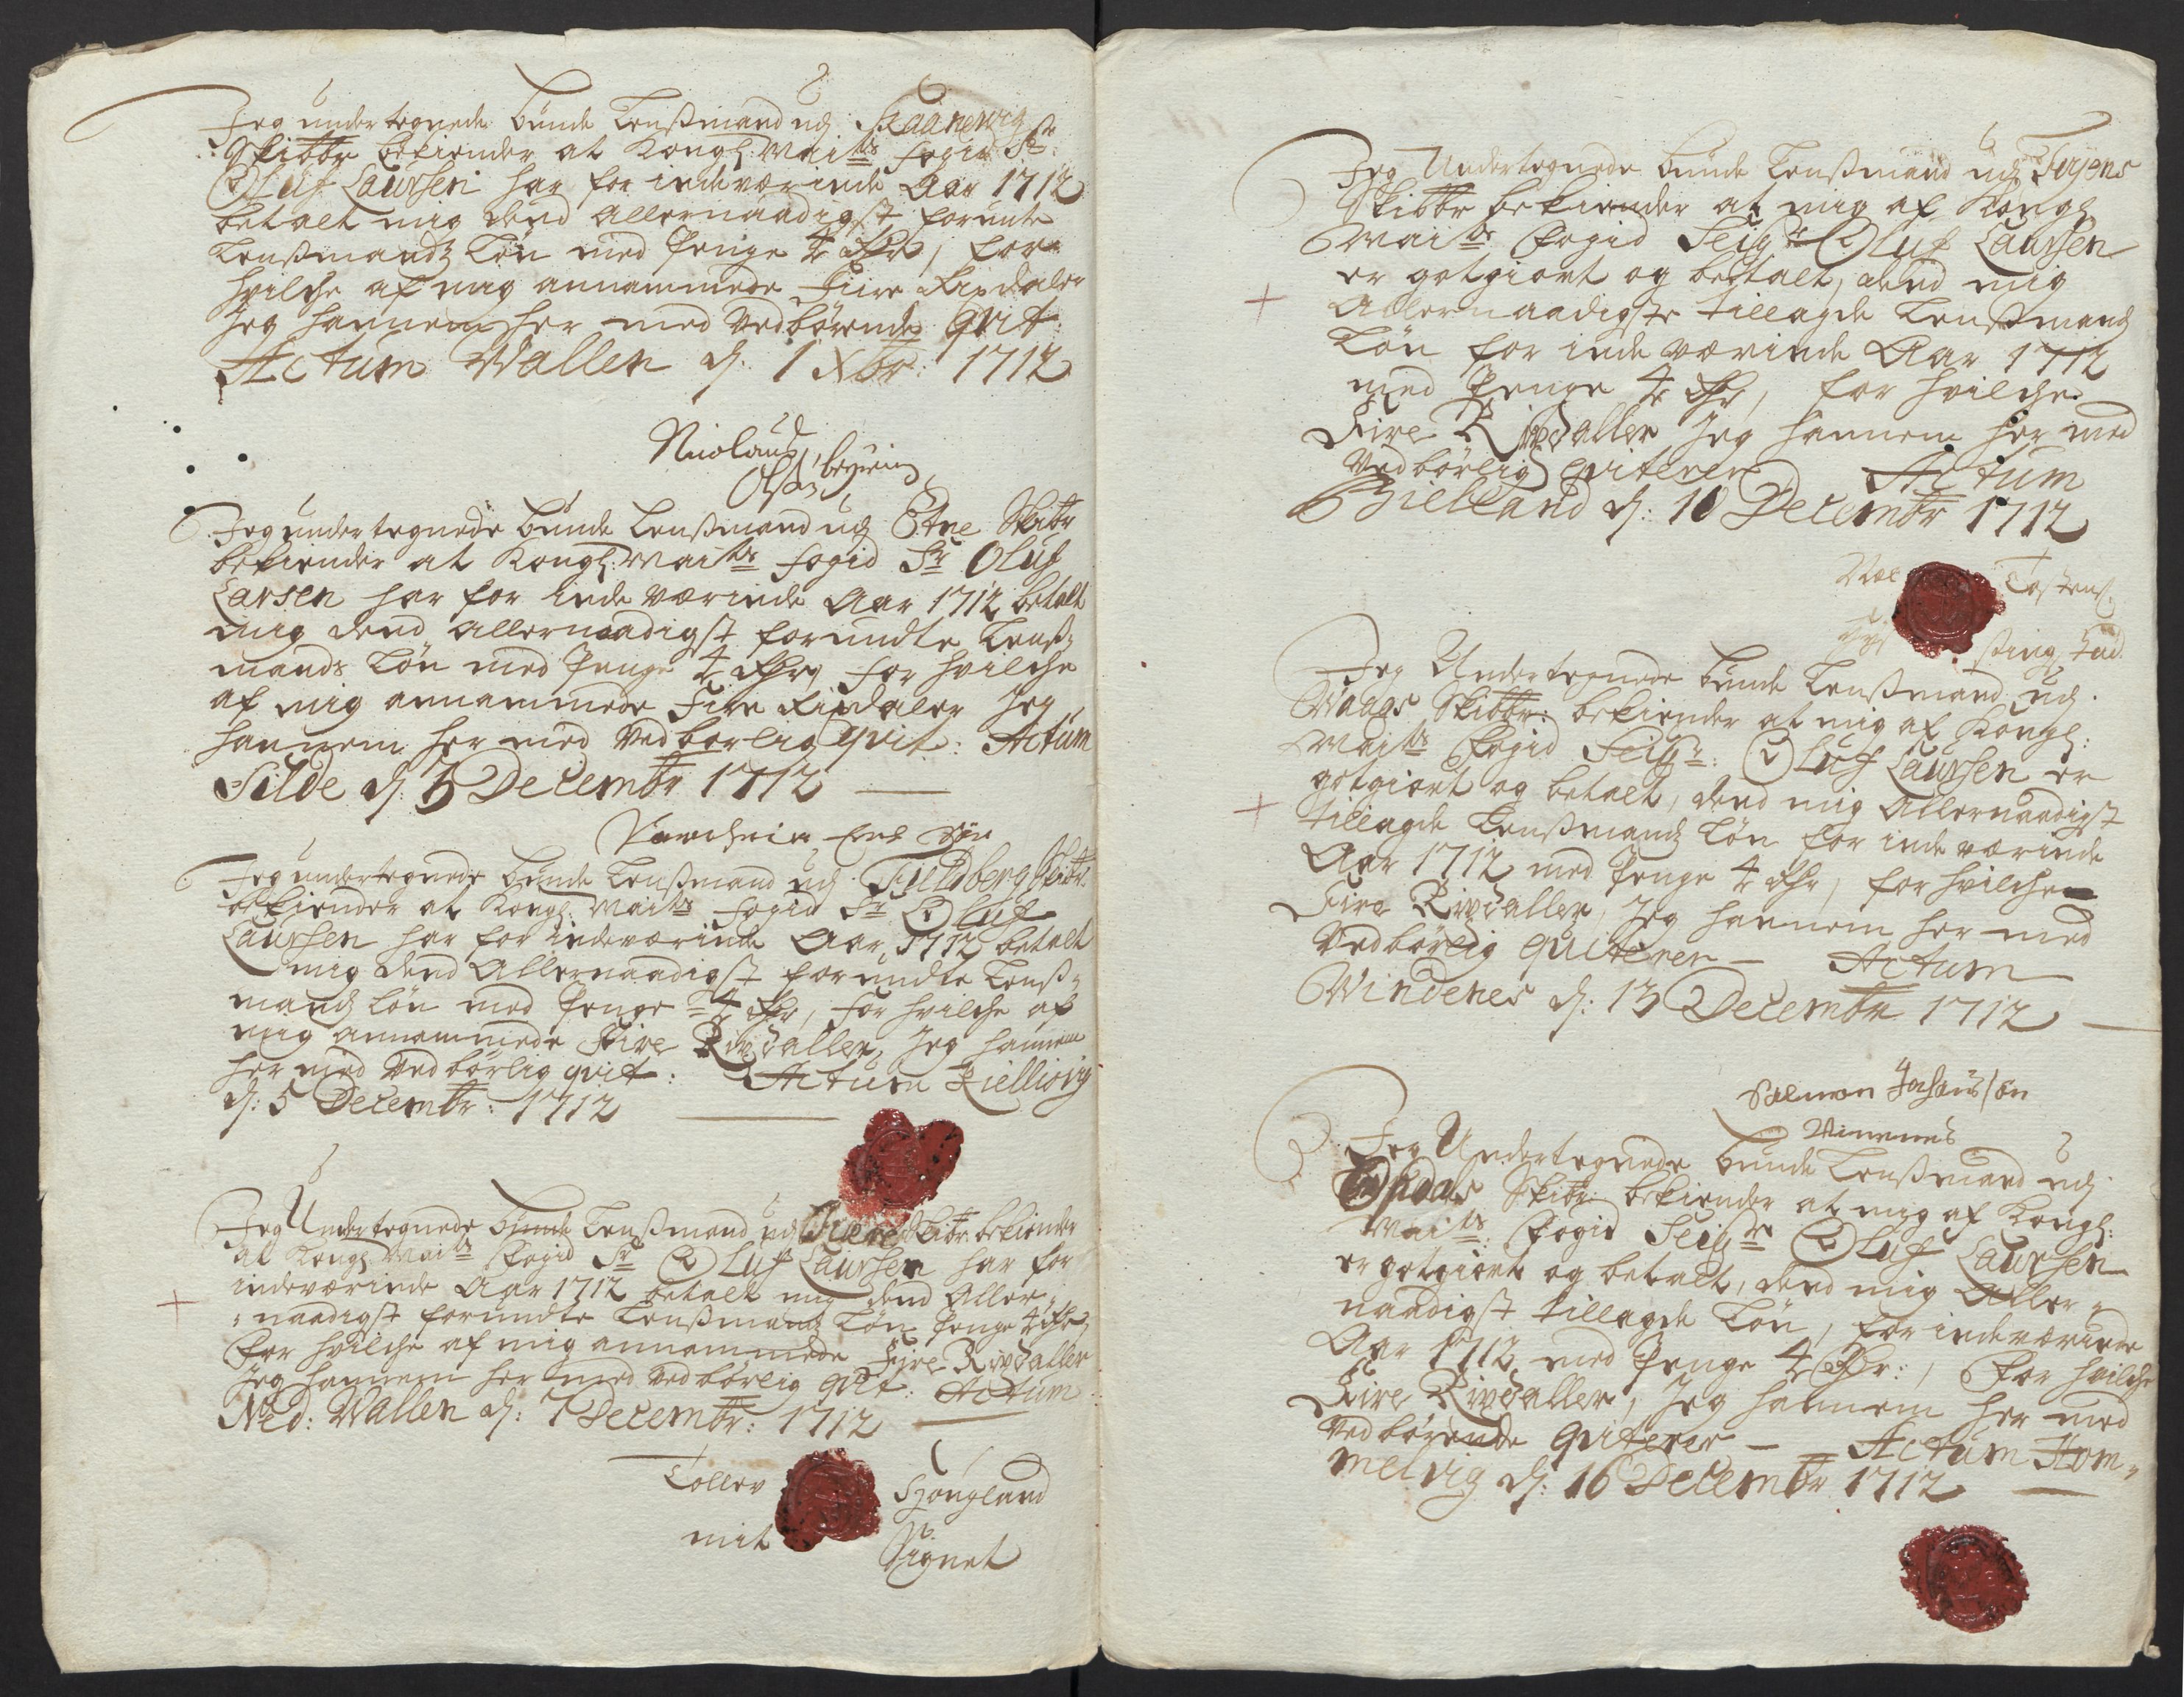 Jeg undertegnede bunde Lensmand udj Skaanevig
Skibbr bekiender at Kongl: Maits fogid Sr
Oluf Laursen har for indeværinde Aar 1712
betalt mig dend allernaadigst forunte
Lensmands Løn med Penge 4 Rdr, for
hvilche af mig annammede Fiire Rixdaler
Jeg hannem her med vedbørende qvit:
Actum Wallen d: 1 Xbr: 1712
Nicolaus
Olsen
Jeg undertegnede bunde Lensmand udj Etne Skibr
bekiender at Kongl: Maits fogid Sr Oluf
Larsen har for inde værinde Aar 1712 betalt
mig dend allernaadigst forundte Lens-
mands Løn med Penge 4 Rdr, for hvilche
af mig annammede Fire Rixdaler Jeg
hannem her med vedborlig qvit: Actum
Silde d: 3 Decembr 1712
Jeg undertegnede bunde Lensmand udj Fieldberg Skibr
bekiender at Kongl: Maits fogid Sr Oluf
Laursen har for indeværinde Aar 1712 betalt
mig dend Allernaadigst forundte Lens-
mands løn med Penge 4 Rdr, for hvilche af
mig annammede Fire Rixdaller, Jeg hannem
her med vedbørlig qvit: Actum Kiellisvig
d: 5 Decembr: 1712
Jeg Undertegnede bunde Lensmand udj Fiere Skibr bekiender
at Kongl Maits Fogid Sr Oluf Laursen har for
indeværinde Aar 1712 betalt mig dend Aller-
naadigst forundte Lensmands Løn Penge 4 Rdr,
for hvilche af mig annammede Fire Rixdaller
Jeg hannem her med vedbørlig qvit: Actum
Ned: Wallen d: 7 Decembr: 1712
Tollev Hougland
mit Signet
Jeg Undertegnede bunde Lensmand udj Føyens
Skibbr bekiender at mig af Kongl
Maits Fogid Seigr Oluf Laursen
er gotgiort og betalt, dend mig
Allernaadigste tillagde Lensmands
Løn for inde værinde Aar 1712
med Penge 4 Rdr, for hvilche
Fire Rixdaller Jeg hannem her med
vedbørlig qviterer Actum
Gielland d: 10 Decembr 1712
Jeg Undertegnede bunde Lensmand udj
Waags Skibbr: bekiender at mig af Kongl:
Maits Fogid Seigr: Oluf Laursen er
gotgiort og betalt, dend mig Allernaadigst
tillagde Lensmands Løn for inde værinde
Aar 1712 med Penge 4 Rdr, for hvilche
Fire Rixdaller, Jeg hannem her med
vedbørlig quiterer – Actum
Windenes d: 13 Decembr 1712
Salmon Johansson
Vinnenes
Jeg Undertegnede bunde Lensmand udj
Opdals Skibr: bekiender at mig af Kongl:
Maits: Fogid Seigr Oluf Laursen
er gotgiort og betalt, dend mig Aller-
naadigst tillagde Løn, for indeværinde
Aar 1712 med Penge 4 Rdr:, for hvilche
Fire Rixdaller, Jeg hannem her med
vedbørende qviterer – Actum Hom-
melvig d: 16 Decembr 1712